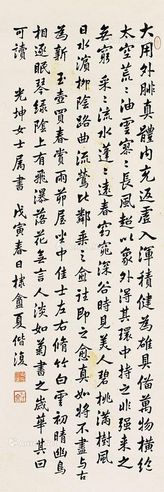 大用外腓真體內充返虛入渾積健為雄具備萬物橫絕
太空荒荒油雲寥寥長風超以象外得其環中持之非強來之
無窮 采采流水蓬蓬遠春窈窕深谷時見美人碧桃滿樹風
日水濱柳陰路曲流鶯比鄰乘之愈往識之愈真如將不盡與古
為新 玉壺買春賞雨茆屋坐中佳士左右脩竹白雲初晴幽鳥
相逐眠琴綠陰上有飛瀑落花無言人淡如菊書之歲華其曰
可讀 光坤女士屬書 戊寅春日棣盦夏偕復